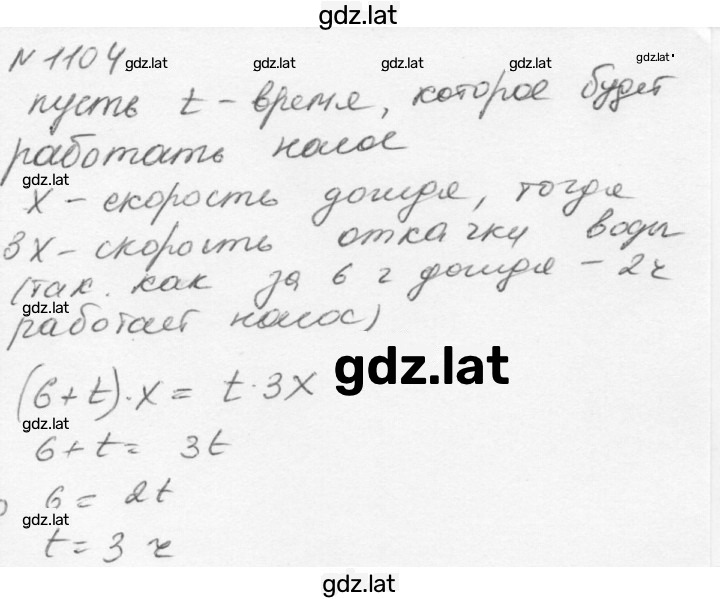 gdz.lat
N 1104 gdz.lat gdz.lat gdz.lat gdz.lat gdz.lat
пусть t - время, которое будет
работать насос
gdz.lat
x - скорость дождя, тогда
3x - скорость откачки воды
(так как за 6 ч дождя - 2ч
gdz.lat
работает насос)
gdz.lat
(6+t)·x = t·3x
gdz.lat
6+t = 3t
6 = 2t
gdz.lat
t = 3 ч
gdz.lat